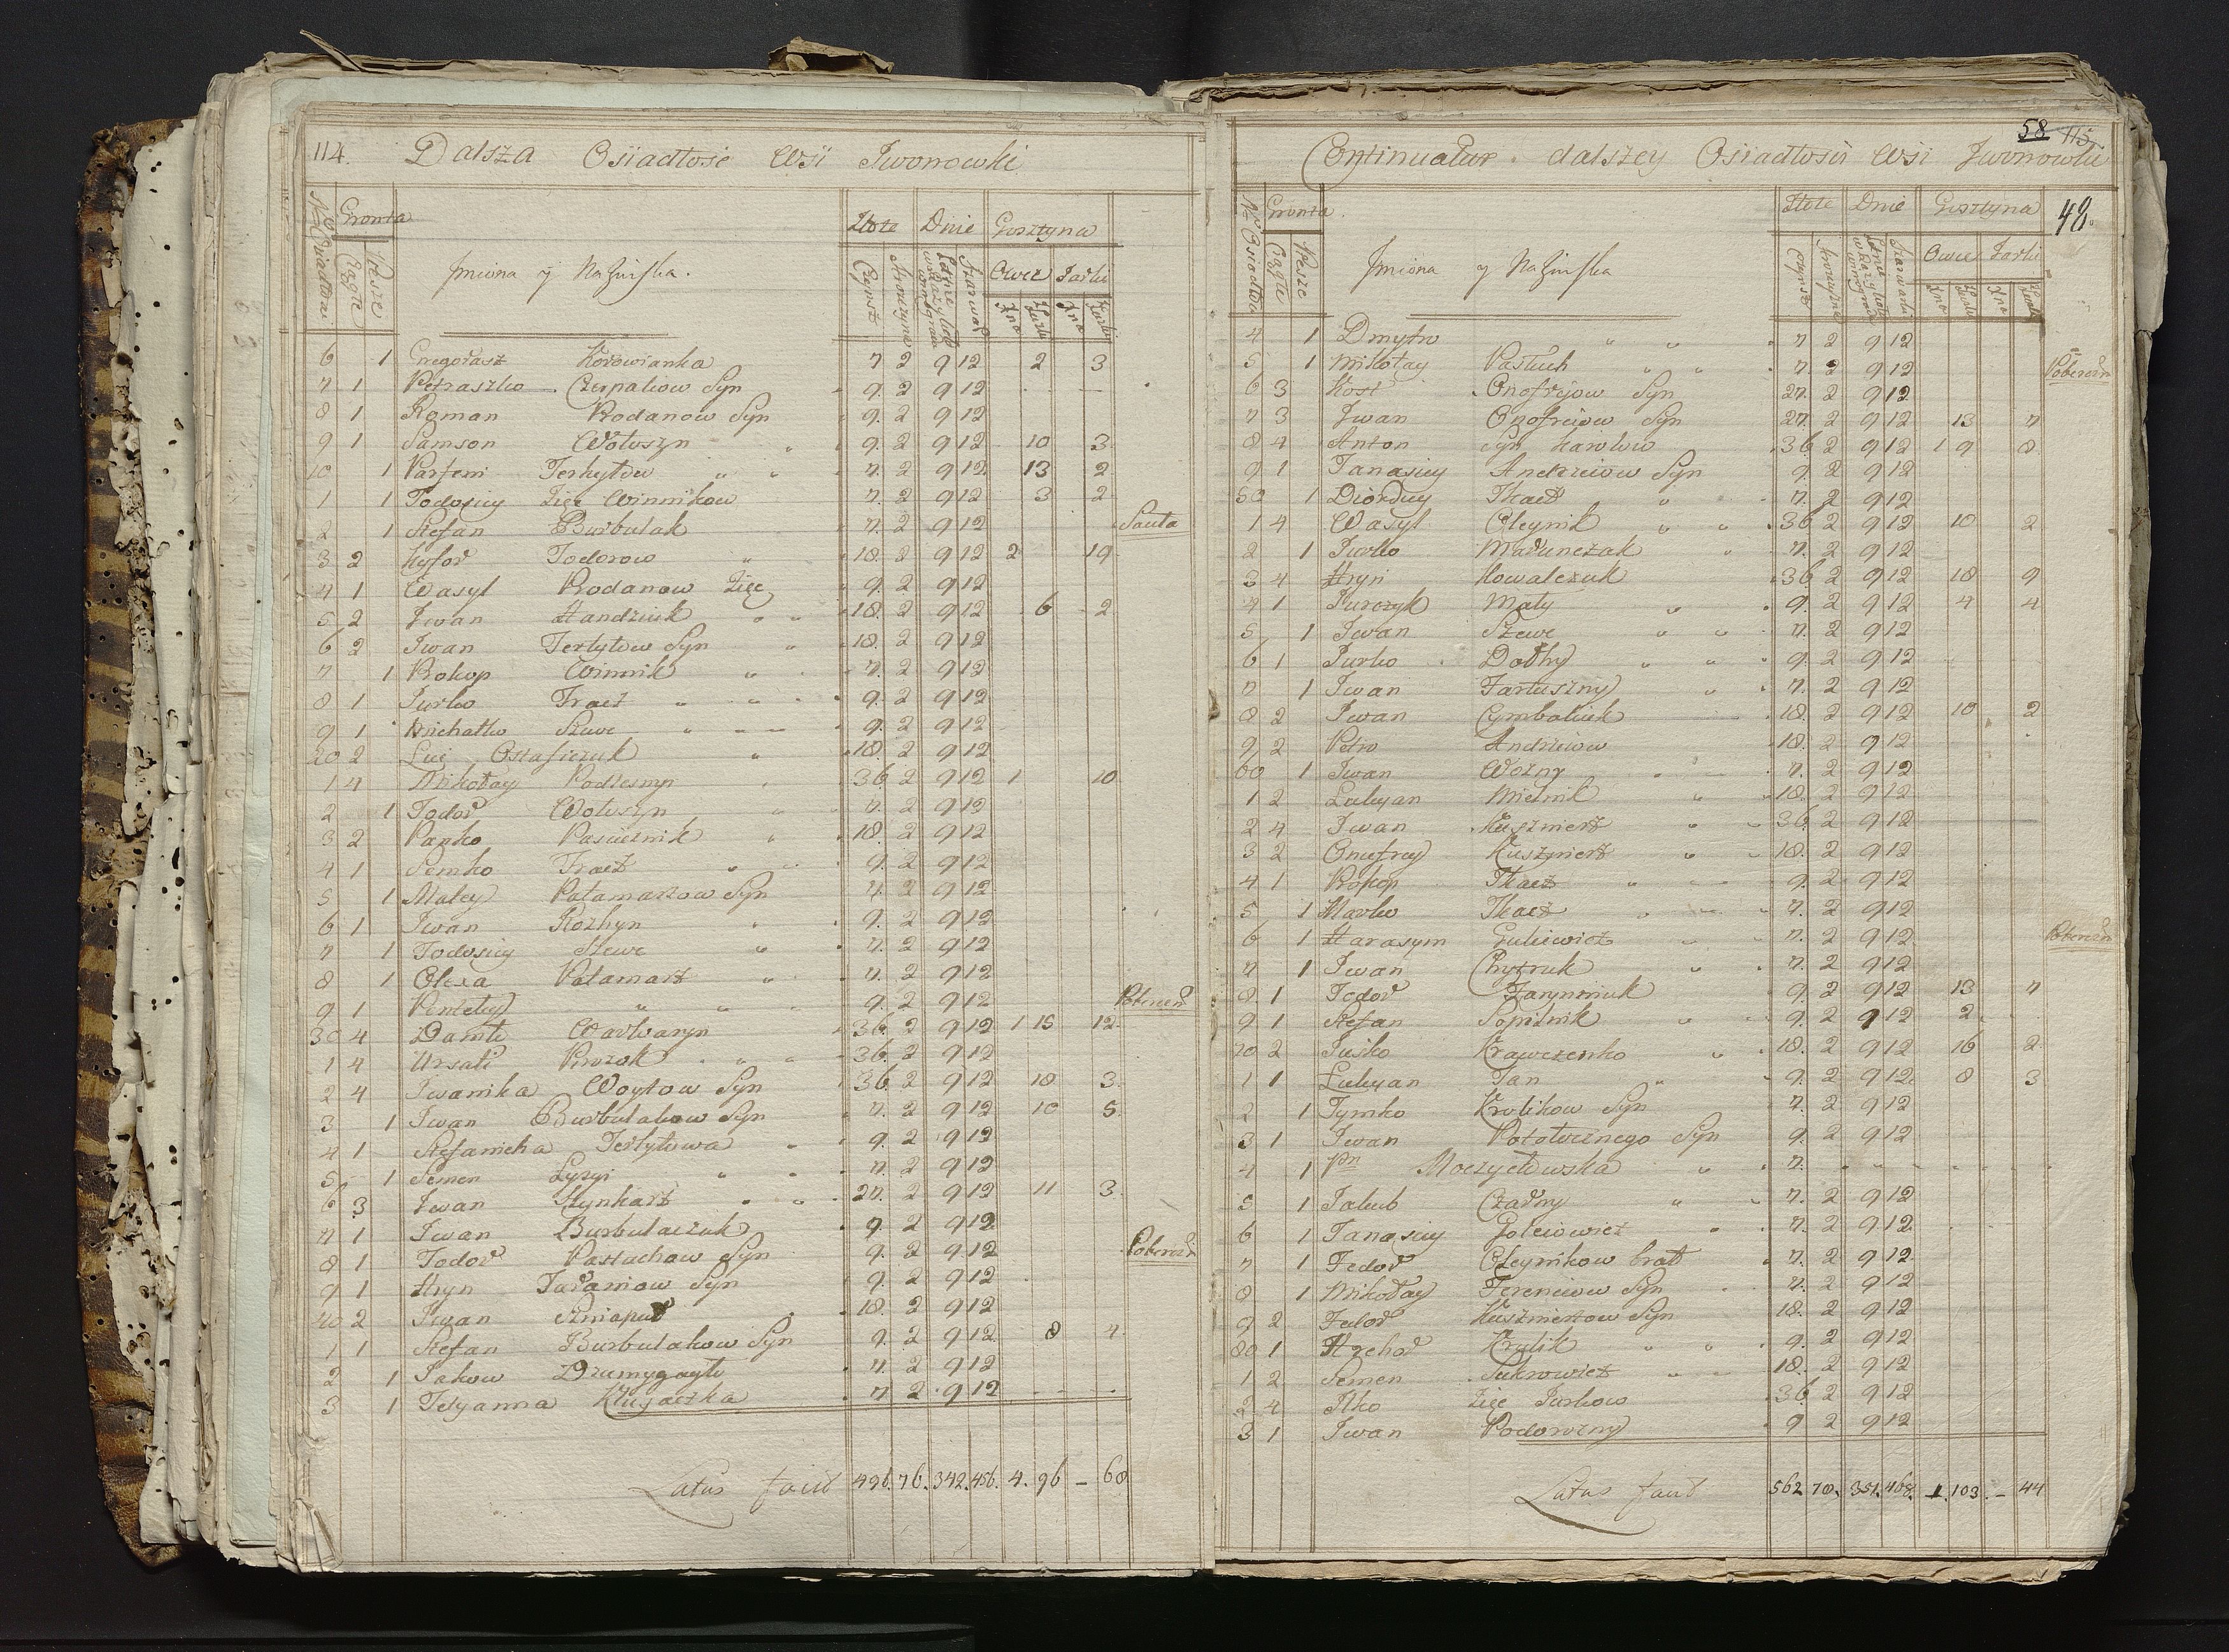 114. Dalsza Osiadłość Wsi Iwonowski
No Osiadłości Gronta Ciągłe Piesze Imiona y Nazwiska. Złote Czynsz Dnie Gosztyna Owce Jarki
6 1 Gregorasz Korowianka 7 2 9 12 2 3
7 1 Petraszko Czerpakow Syn 9. 2 9 12
8 1 Roman Rodanow Syn 9. 2 9 12
9 1 Samson Wołoszyn 9. 2 9 12 10 3
10 1 Parfeni Terhyłow 7. 2 9 12 13 2
1 1 Todosiey Zięć Winnikow 7. 2 9 12 3 2
2 1 Stefan Burbulak 7. 2 9 12 Sauta
3 2 Hyfor Todorow 18. 2 9 12 2 19
4 1 Wasyl Rodanow Zięć 9. 2 9 12
5 2 Iwan Handziuk 18. 2 9 12 6 2
6 2 Iwan Terłyłow Syn 18. 2 9 12
7 1 Prokop Winnik 7. 2 9 12
8 1 Jurko Tracz 9. 2 9 12
9 1 Michałko Szewc 9. 2 9 12
20 2 Łuć Ostaficzuk 18. 2 9 12
1 4 Mikołay Podlesnyi 36 2 9 12 1 10
2 1 Todor Wołoszyn 7. 2 9 12
3 2 Panko Pasiecznik 18 2 9 12
4 1 Semko Tracz 9. 2 9 12
5 1 Maley Patamarzow Syn 7. 2 9 12
6 1 Iwan Rozhyn 9. 2 9 12
7 1 Todosiey Szewc 7. 2 9 12
8 1 Olexa Patamarz 7. 2 9 12
9 1 Penteley " 9. 2 9 12 Pobereż
30 4 Daniło Warwaryn 36. 2 9 12 1 15 12.
1 4 Ursati Prozok 36. 2 9 12
2 4 Iwanika Woytow Syn 36 2 9 12 18 3.
3 1 Iwan Burbulakow Syn 7. 2 9 12 10 5.
4 1 Stefanicha Terłyłowa 9. 2 9 12
5 1 Semen Łyzyi 7. 2 9 12
6 3 Iwan Szynkarz 27. 2 9 12 11 3.
7 1 Iwan Burbulaczuk 9 2 9 12
8 1 Todor Pastuchow Syn 9. 2 9 12 Pobereż
9 1 Hryn Taraniow Syn 9. 2 9 12
40 2 Iwan 18. 2 9 12
1 1 Stefan Burbulakow Syn 9. 2 9 12 8 4.
2 1 Jakow Dzumygayło 7. 2 9 12
3 1 Tetyanna Kługaczka 7 2 9 12
Latus facit 496. 76. 342. 456. 4. 96 – 68
58 115
Continuatur dalszey Osiadłości Wsi Iwonowki
48.
No Osiadłości Gronta. Ciągłe Piesze Imiona y Nazwiska Złote Czynsz Dnie Gosztyna Owce Jarki
4 1 Dmytro " 7 2 9 12
5 1 Mikołay Pastuch 7. 2 9 12 Pobereż
6 3 Kost Onofrejow Syn 27. 2 9 12
7 3 Iwan Onofreiow Syn 27. 2 9 12 13 7
8 4 Anton Syn Hawłow 36 2 9 12 1 9 8
9 1 Tanasiey Andreiow Syn 9. 2 9 12
50 1 Diordiey Tkacz 7. 2 9 12
1 4 Wasyl Oleynik 36 2 9 12 10 2
2 1 Jurko Marunczak 7. 2 9 12
3 4 Hryn Kowalczuk 36 2 9 12 18 9
4 1 Jurczyk Mały 9. 2 9 12 4 4
5 1 Iwan Szewc 7. 2 9 12
6 1 Jurko Dołhy 9. 2 9 12
7 1 Iwan Fartuszny 7. 2 9 12
8 2 Iwan Cymbaliuk 18. 2 9 12 10 2
9 2 Petro Andreiow 18. 2 9 12
60 1 Iwan Wozny 7. 2 9 12
1 2 Łukyan Mielnik 18. 2 9 12
2 4 Iwan Kuszmierz 36. 2 9 12
3 2 Onufrey Kuszmierz 18. 2 9 12
4 1 Prokop Tkacz 9. 2 9 12
5 1 Marko Tkacz 7. 2 9 12
6 1 Harasym Guliewicz 7. 2 9 12 Pobereż
7 1 Iwan Chytruk 7. 2 9 12
8. 1 Todor Harynniuk 9. 2 9 12 13 7
9 1 Stefan Sopilnik 9. 2 9 12 2
70 2 Jusko Krawczenko 18. 2 9 12 16 2
1 1 Łukyan Jan 9. 2 9 12. 8 3
2 1 Tymko Krolikow Syn 7. 2 9 12
3 1 Iwan Połotwcznego Syn 9. 2 9 12
4 1 Pni Moczycłowska 7.
5 1 Jakub Czarny 7. 2 9 12
6 1 Tanasiey Goleiowicz 7. 2 9 12.
7 1 Fedor Oleynikow brat 7. 2 9 12.
8 1 Mikołay Fereniow Syn 7. 2 9 12
9 2 Fedor Kuszmierzow Syn 18. 2 9 12
80 1 Hrehor Krolik 9. 2 9 12
1 2 Semen Sukrowicz 18. 2 9 12
2 4 Ilko Zięć Jurkow 36. 2 9 12
3 1 Iwan Podorozny 9 2 9 12
Latus facit 562 78. 351. 468. 1. 103. – 44